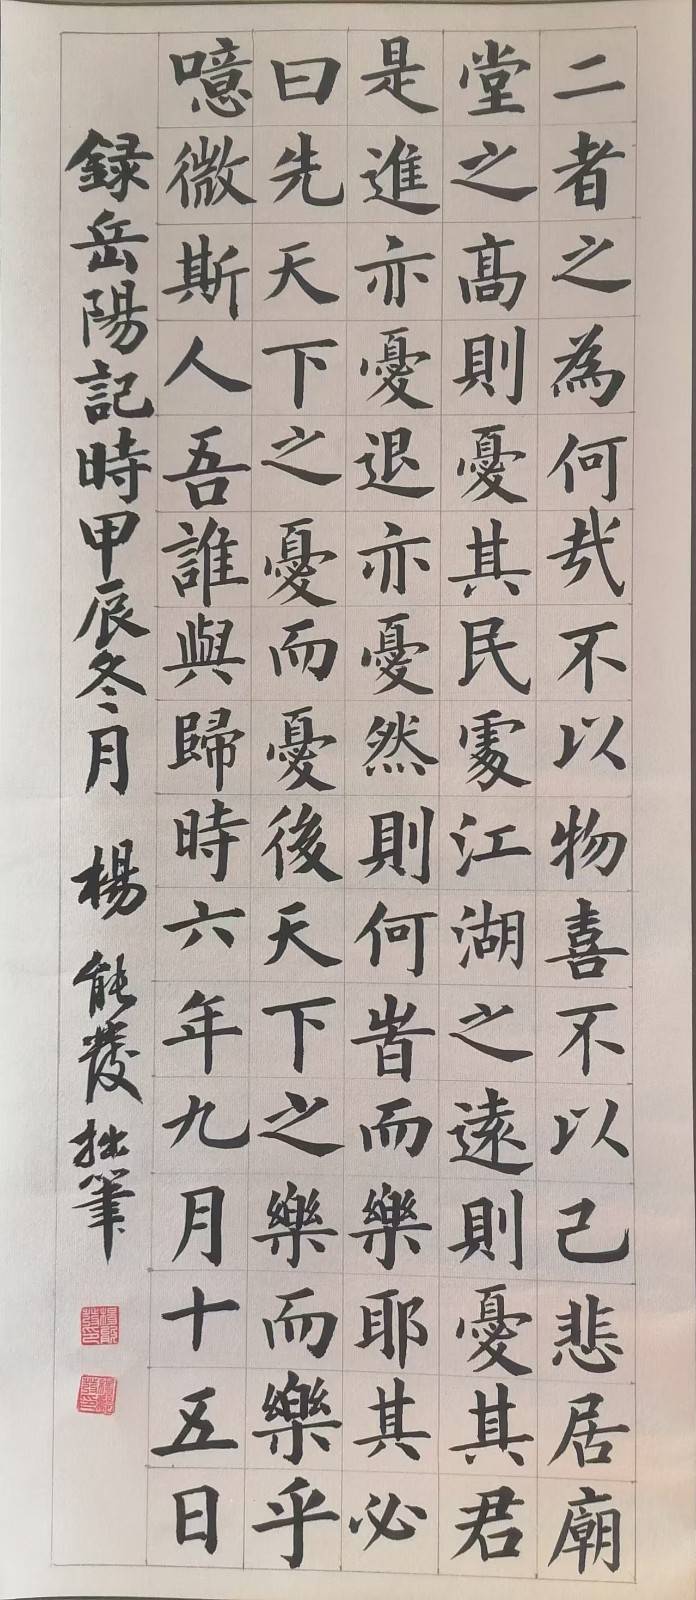 二者之為何哉不以物喜不以己悲居廟
堂之高則憂其民處江湖之遠則憂其君
是進亦憂退亦憂然則何時而樂耶其必
曰先天下之憂而憂後天下之樂而樂乎
噫微斯人吾誰與歸時六年九月十五日
録岳陽記時甲辰冬月 楊能發拙筆